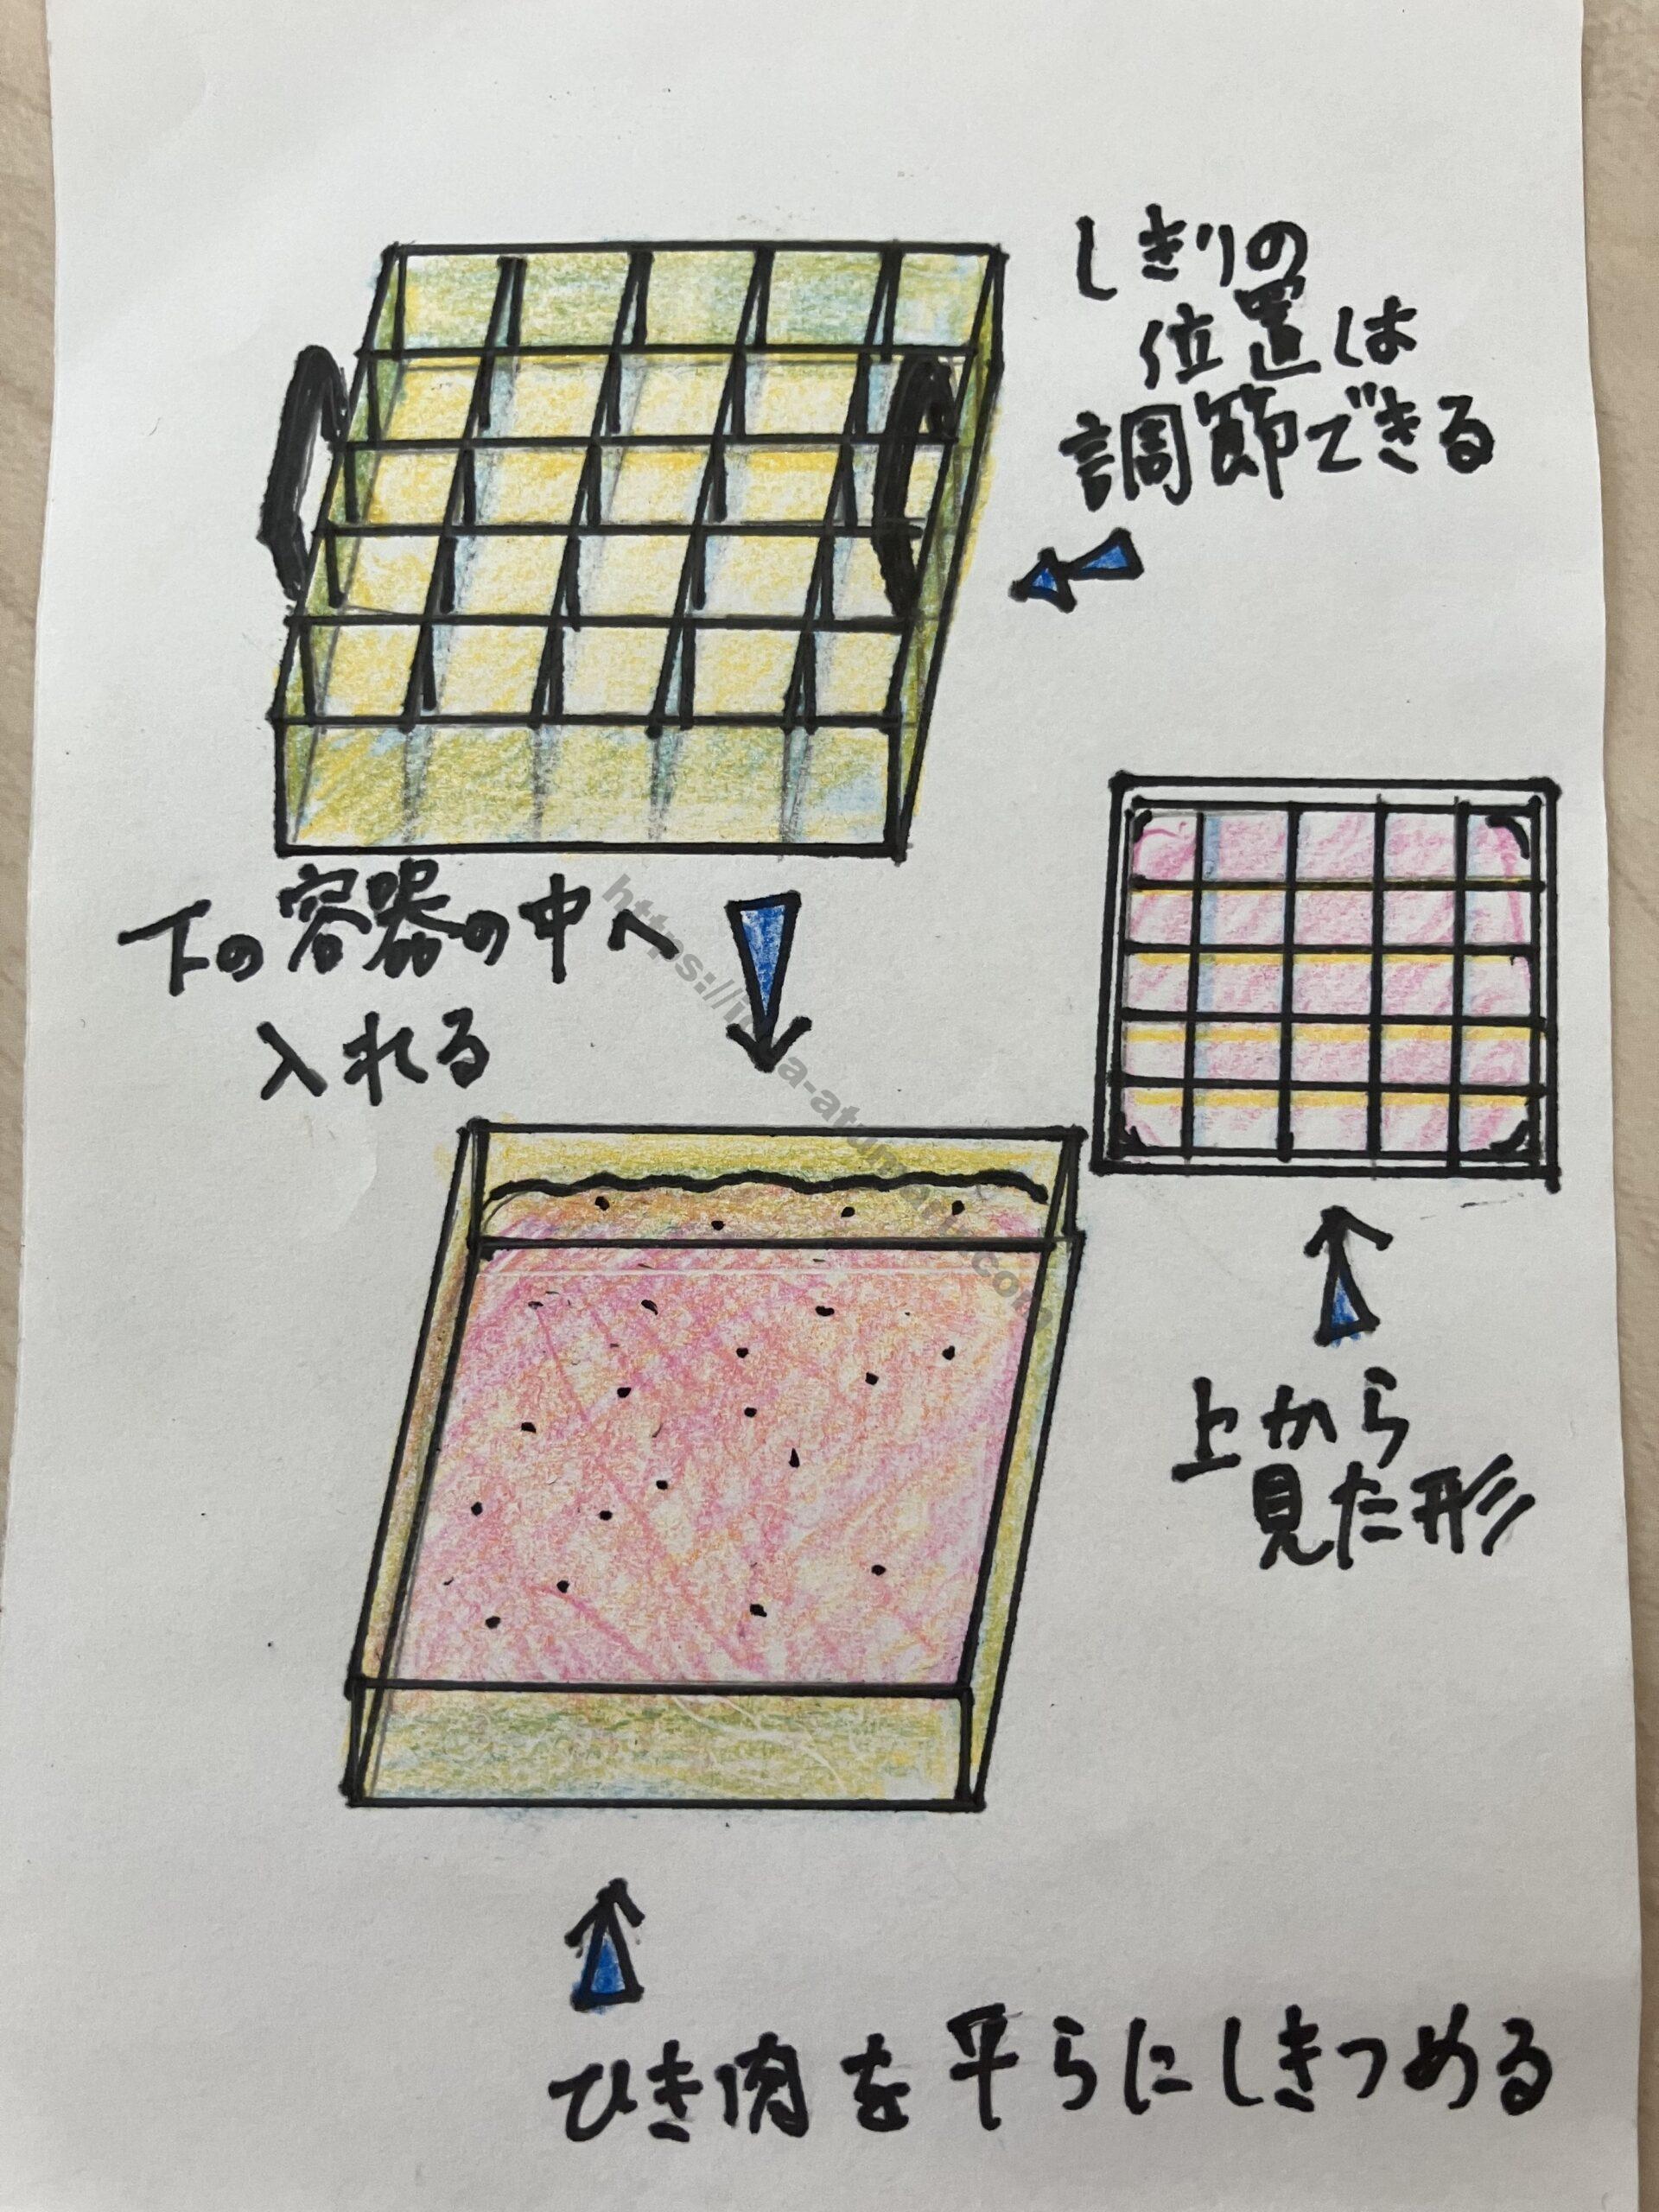 しきりの
位置は
調節できる
下の容器の中へ
入れる
上から
見た形
ひき肉を平らにしきつめる